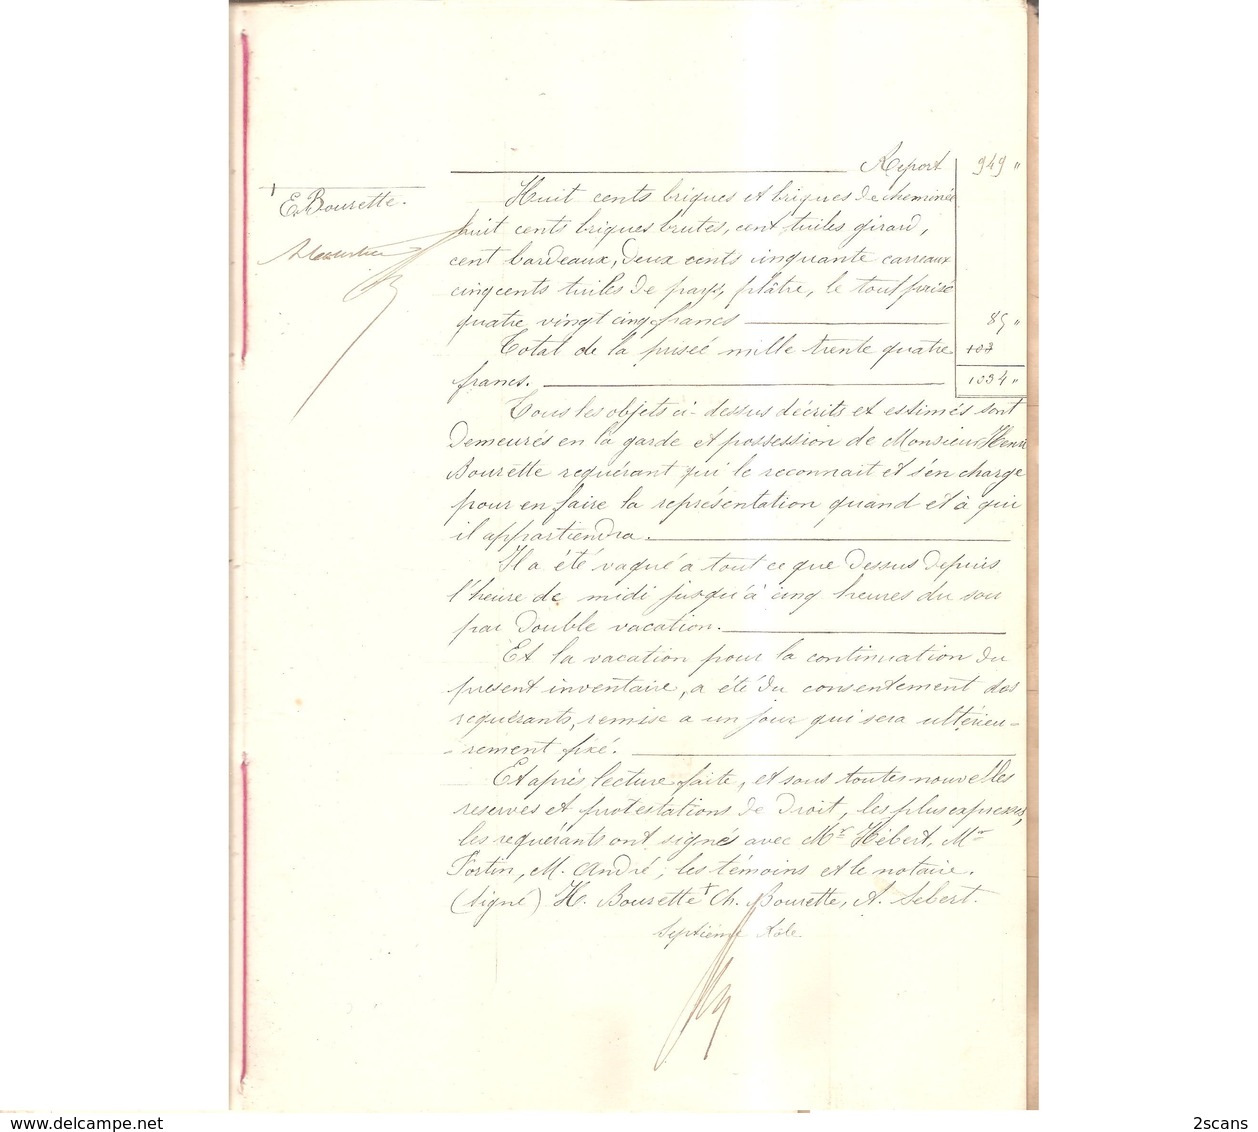 Report 949 "
E. Bourette.
Huit cents briques et briques de cheminée
huit cents briques brutes, cent tuiles girard,
cent bardeaux, deux cents cinquante carreaux
cinq cents tuiles de pays, plâtre, le tout prisé
quatre vingt cinq francs 85 "
Total de la prisée mille trente quatre
francs. 1034 "
Tous les objets ci-dessus décrits et estimés sont
demeurés en la garde et possession de Monsieur Henri
Bourette requérant qui le reconnait et s'en charge
pour en faire la représentation quand et à qui
il appartiendra.
Il a été vaqué à tout ce que dessus depuis
l'heure de midi jusqu'à cinq heures du soir
par double vacation.
Et la vacation pour la continuation du
présent inventaire, a été du consentement des
requérants, remise a un jour qui sera ultérieu-
-rement fixé.
Et après lecture faite, et sous toutes nouvelles
reserves et protestations de droit, les plus expresses,
les requérants ont signés avec Mr Hébert, Mr
Fortin, M. André, les témoins et le notaire.
(Signé) H. Bourette + Ch. Bourette, A. Sebert.
Septième rôle
2scans